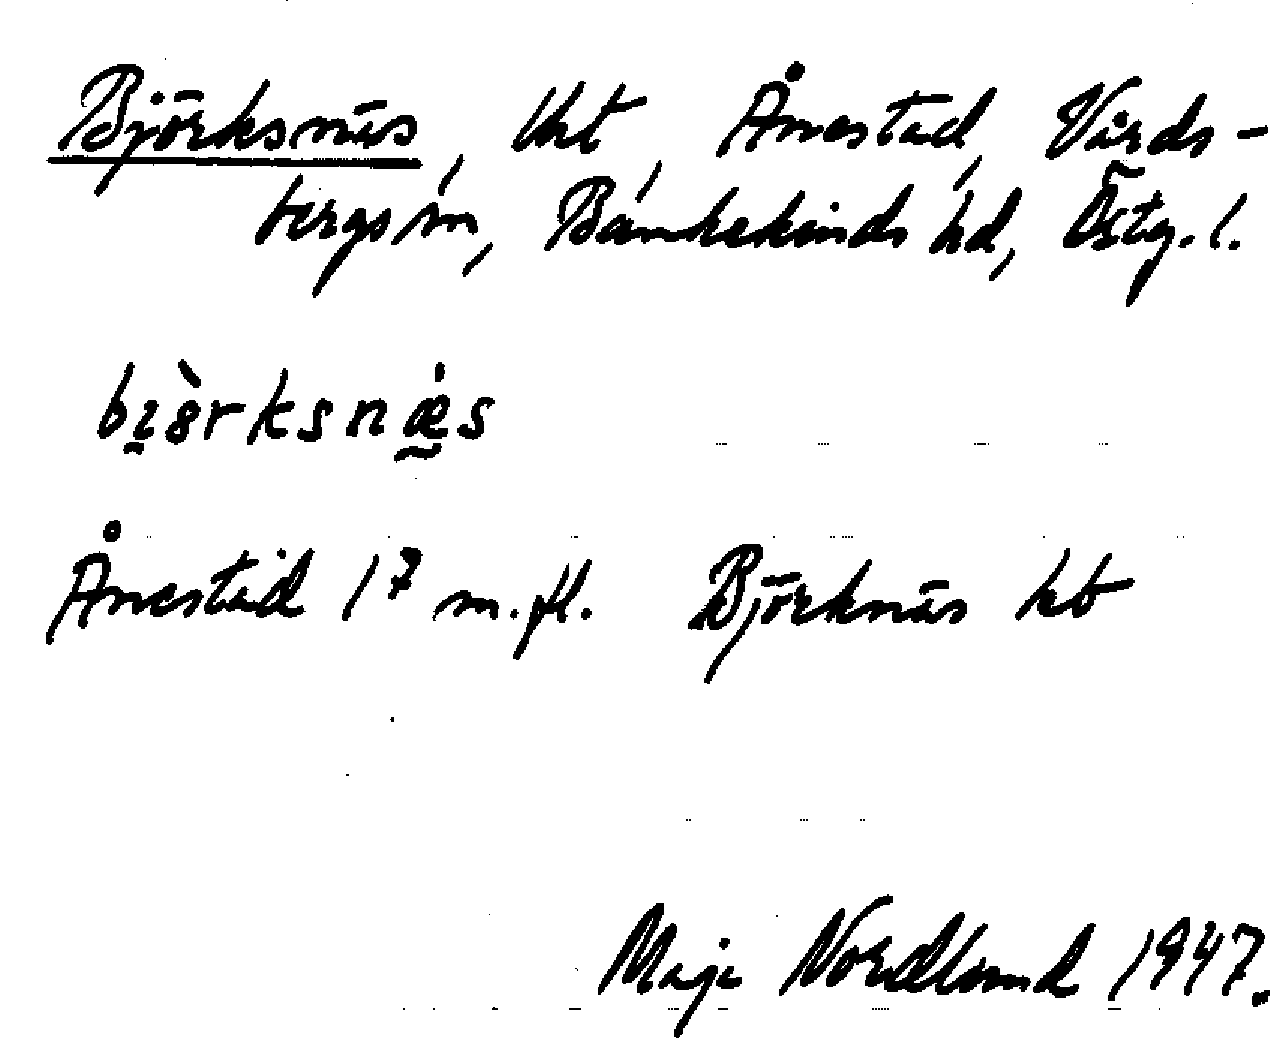 Björksnäs, tkt, Ånestad, Vårds-
bergs sn, Bankekinds hd, Östg. l.
bi̯ö̀rksnæ̣s
Ånestad 1⁷ m.fl. Björknäs kb
Maja Nordlund 1947.